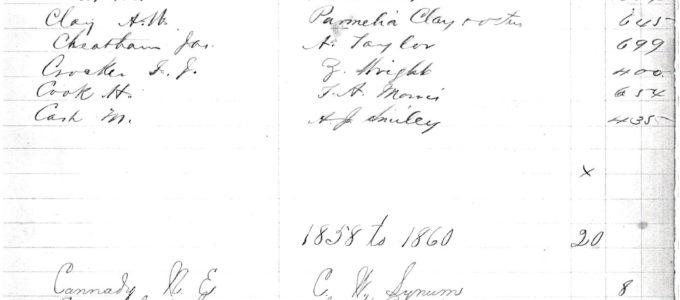 Clay A.W. Parmelia Clay & others 645
Cheatham Jas. A. Taylor 699
Crocker T. J. Z. Wright 400
Cook H. T. A. Morris 654
Cash M. A J Smiley 435
x
1858 to 1860 20
Cannady N. E. C. W. Synums 8